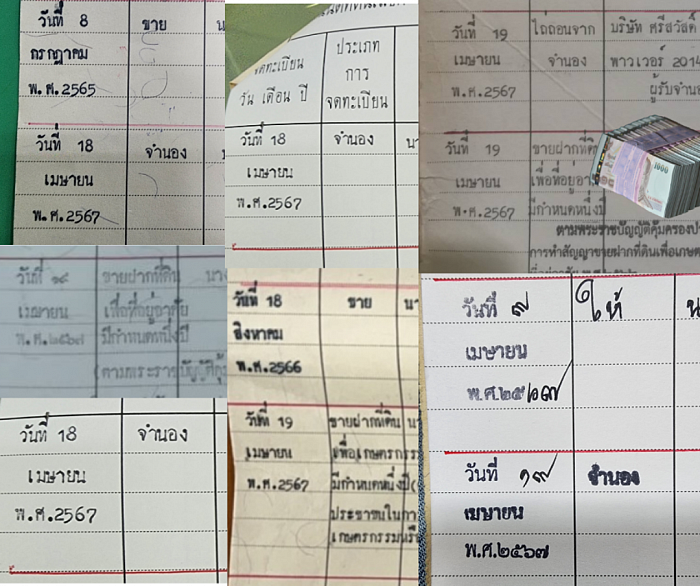 วันที่ 8 ขาย
กรกฎาคม
พ.ศ.2565
วันที่ 18 จำนอง
เมษายน
พ.ศ.2567
จดทะเบียน ประเภท
วัน เดือน ปี การ
จดทะเบียน
วันที่ 18 จำนอง
เมษายน
พ.ศ.2567
วันที่ 19 ไถ่ถอนจาก บริษัท ศรีสวัสดิ์
เมษายน จำนอง พาวเวอร์ 2014
พ.ศ.2567 ผู้รับจำนอง
วันที่ 19 ขายฝากที่ดิน
เมษายน เพื่อที่อยู่อาศัย
พ.ศ.2567 มีกำหนดหนึ่งปี
ตามพระราชบัญญัติคุ้มครอง
การทำสัญญาขายฝากที่ดินเพื่อเกษตร
1000
วันที่ ๑๙ ขายฝากที่ดิน นาง
เมษายน เพื่อที่อยู่อาศัย
พ.ศ.๒๕๖๗ มีกำหนดหนึ่งปี
(ตามพระราชบัญญัติคุ้
วันที่ 18 จำนอง
เมษายน
พ.ศ.2567
วันที่ 18 ขาย นา
สิงหาคม
พ.ศ.2566
วันที่ 19 ขายฝากที่ดิน นา
เมษายน เพื่อเกษตรกรร
พ.ศ.2567 มีกำหนดหนึ่งปี(
ประชาชนในกา
เกษตรกรรมหรือ
วันที่ ๗ ให้ น
เมษายน
พ.ศ.๒๕๖๗
วันที่ ๑๙ จำนอง
เมษายน
พ.ศ.๒๕๖๗